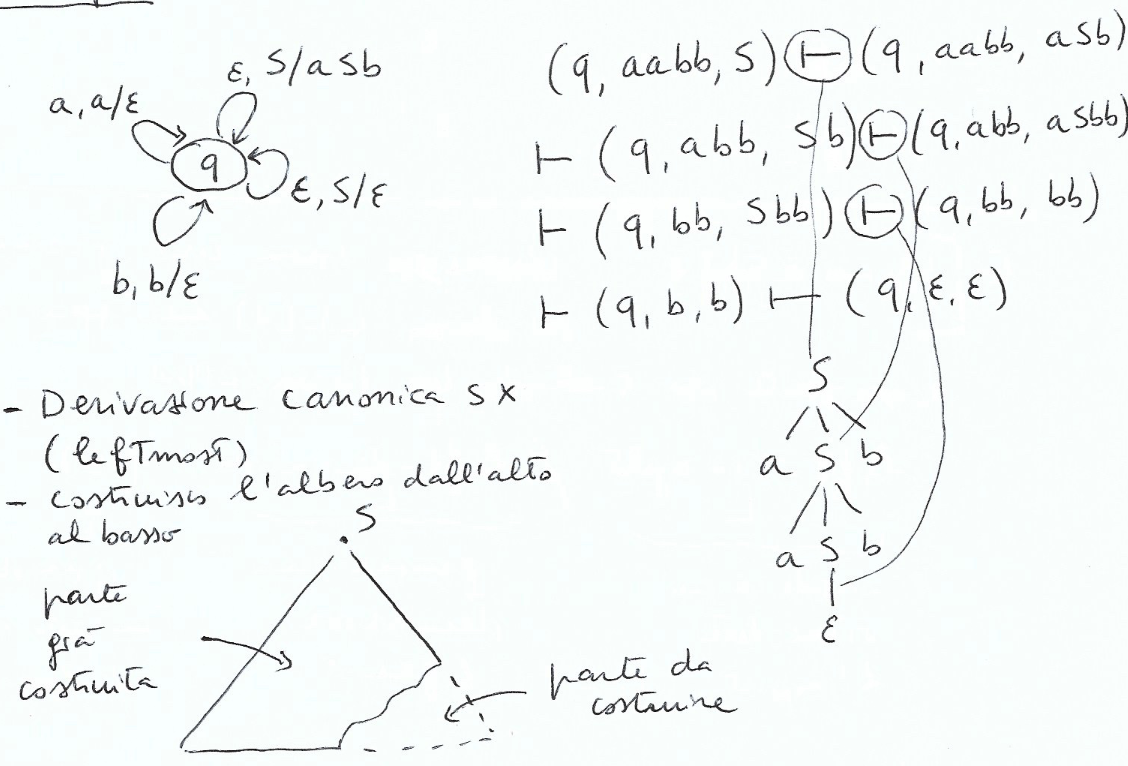 ε, S/aSb
a, a/ε
q
ε, S/ε
b, b/ε
(q, aabb, S) ⊢ (q, aabb, aSb)
⊢ (q, abb, Sb) ⊢ (q, abb, aSbb)
⊢ (q, bb, Sbb) ⊢ (q, bb, bb)
⊢ (q, b, b) ⊢ (q, ε, ε)
S
a S b
a S b
ε
- Derivazione canonica sx
(leftmost)
- costruisco l'albero dall'alto
al basso
S
parte
già
costruita
parte da
costruire